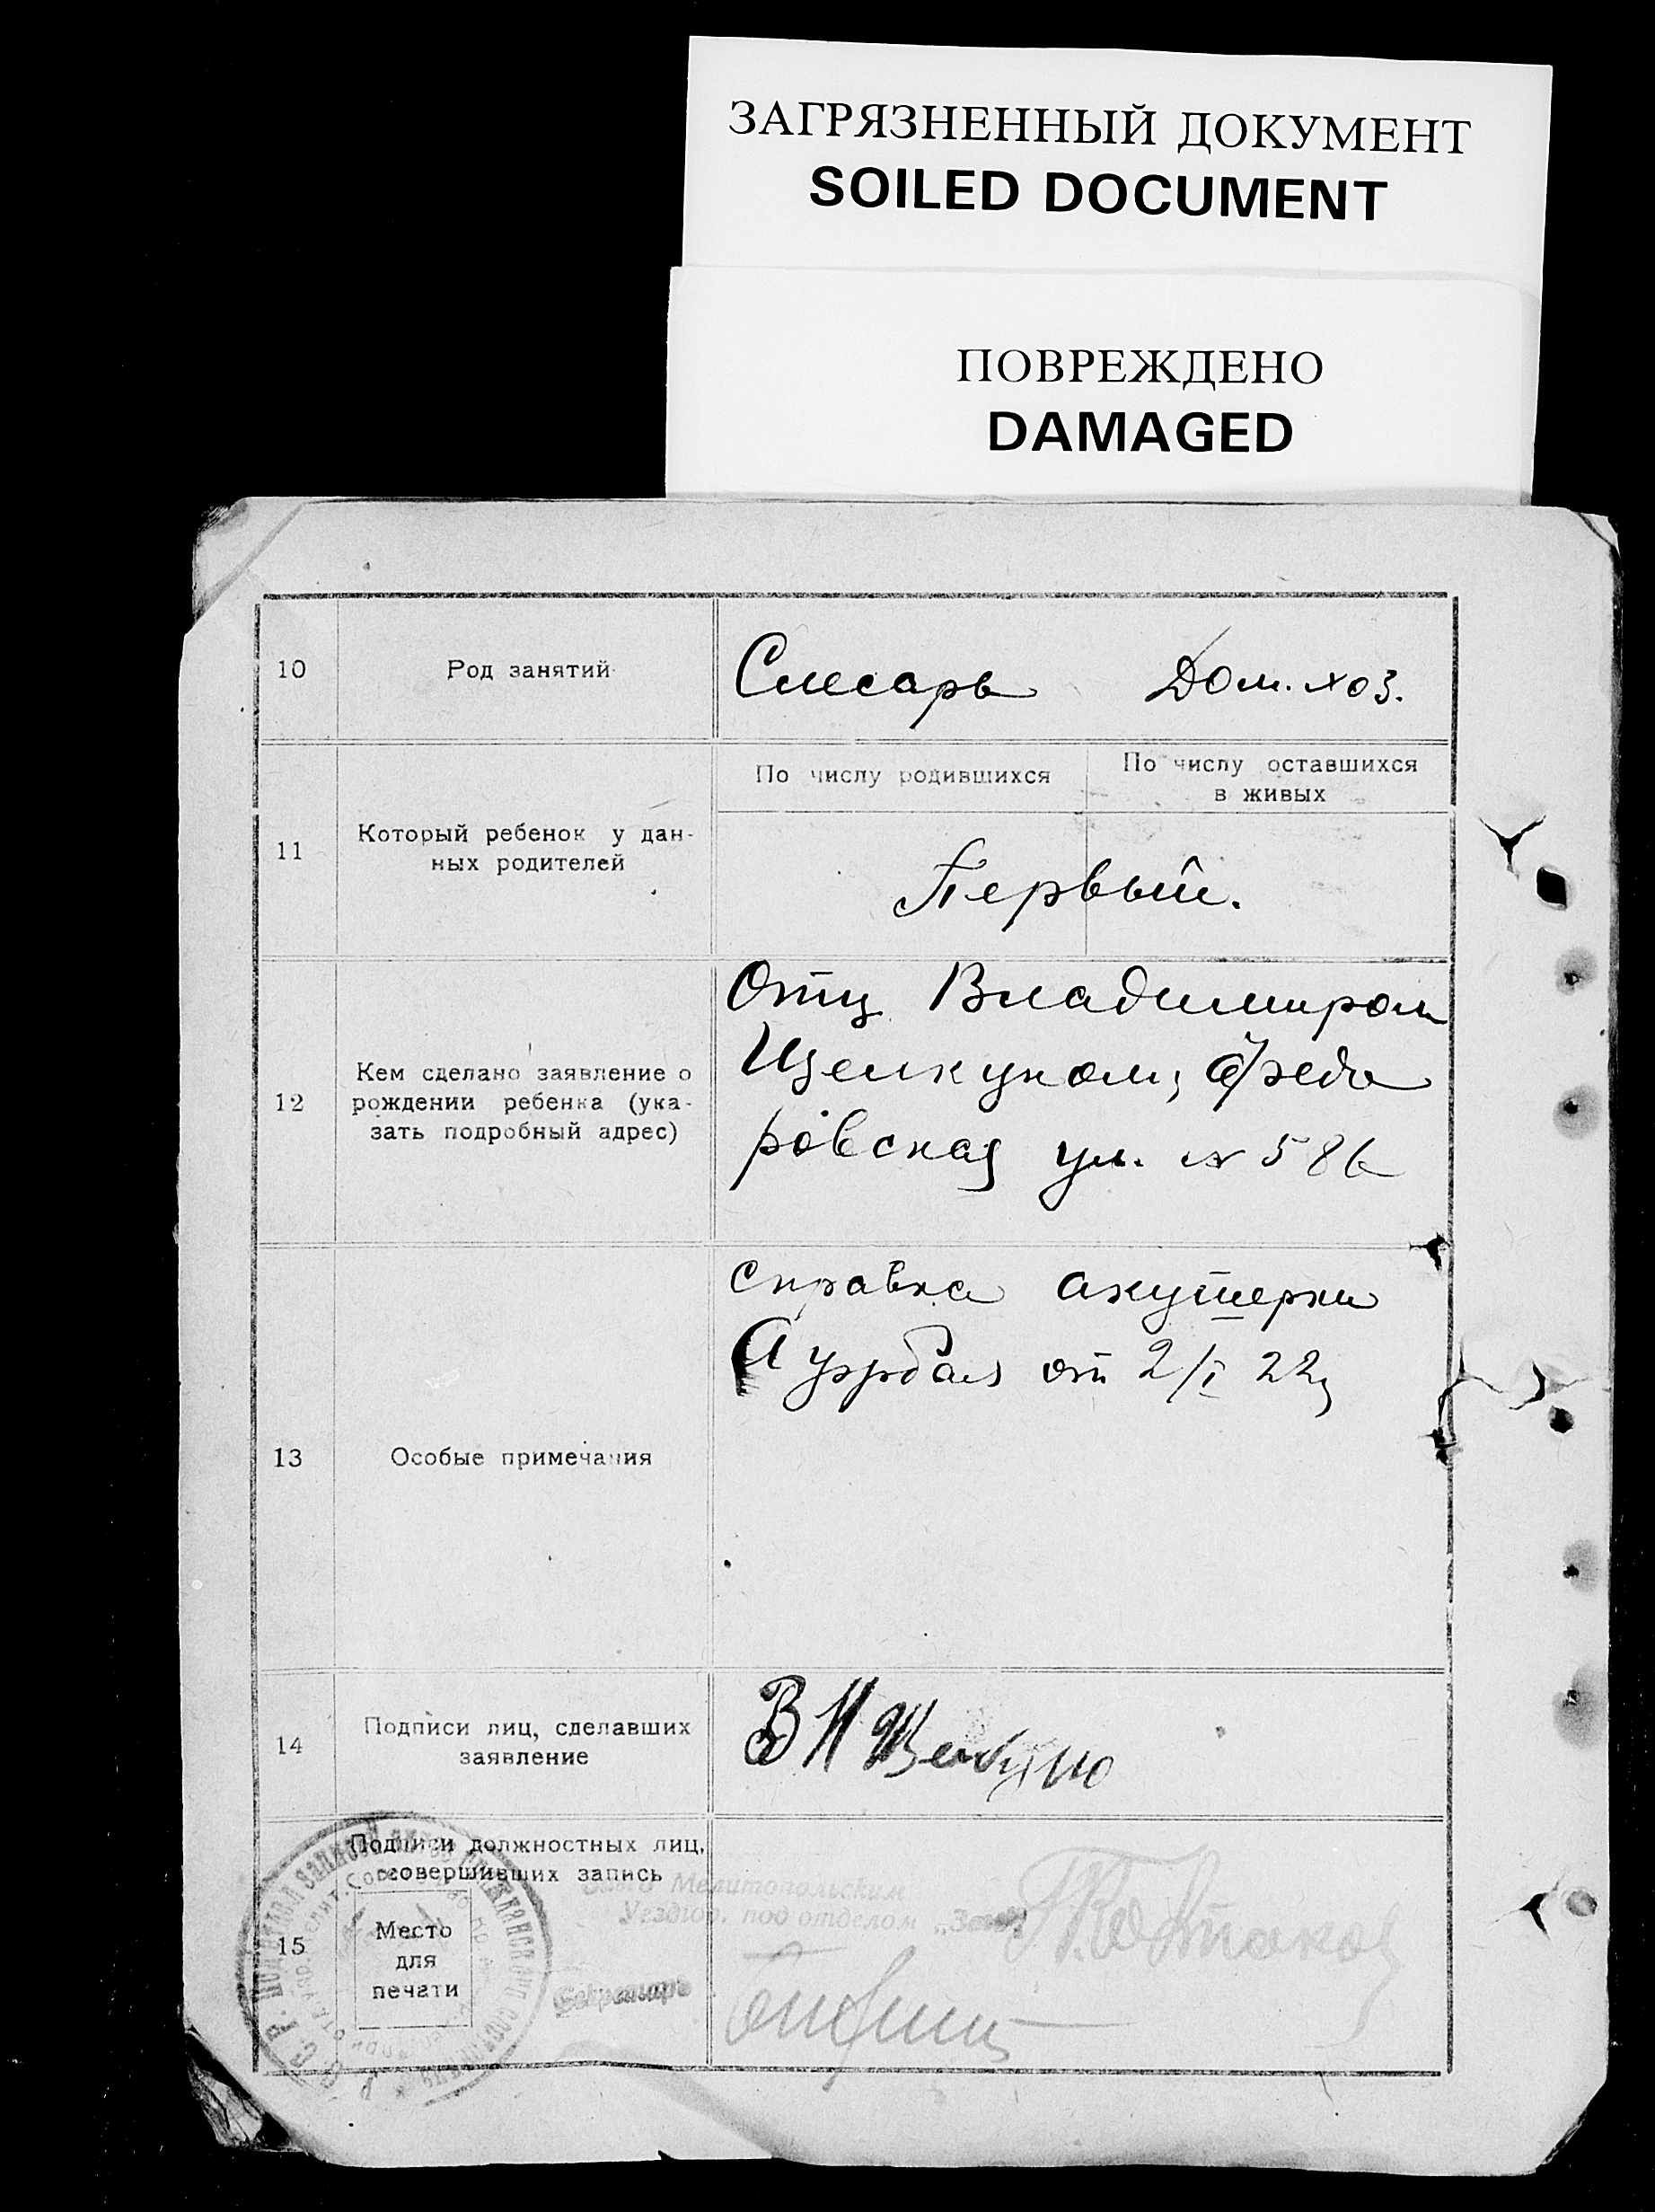 ЗАГРЯЗНЕННЫЙ ДОКУМЕНТ
SOILED DOCUMENT
ПОВРЕЖДЕНО
DAMAGED
10 Род занятий Слесарь Дом. хоз.
По числу родившихся
По числу оставшихся
в живых
11
Который ребенок у дан-
ных родителей
Первый.
12
Кем сделано заявление о
рождении ребенка (ука-
зать подробный адрес)
Отц Владимиром
Щелкуном,
ровская ул. № 58
13 Особые примечания
Справка акушерки
от 2/I 22
14
Подписи лиц, сделавших
заявление
В И
15
Подписи должностных лиц,
совершивших запись
Место
для
печати
Мелитопольским
под отделом
Секретарь